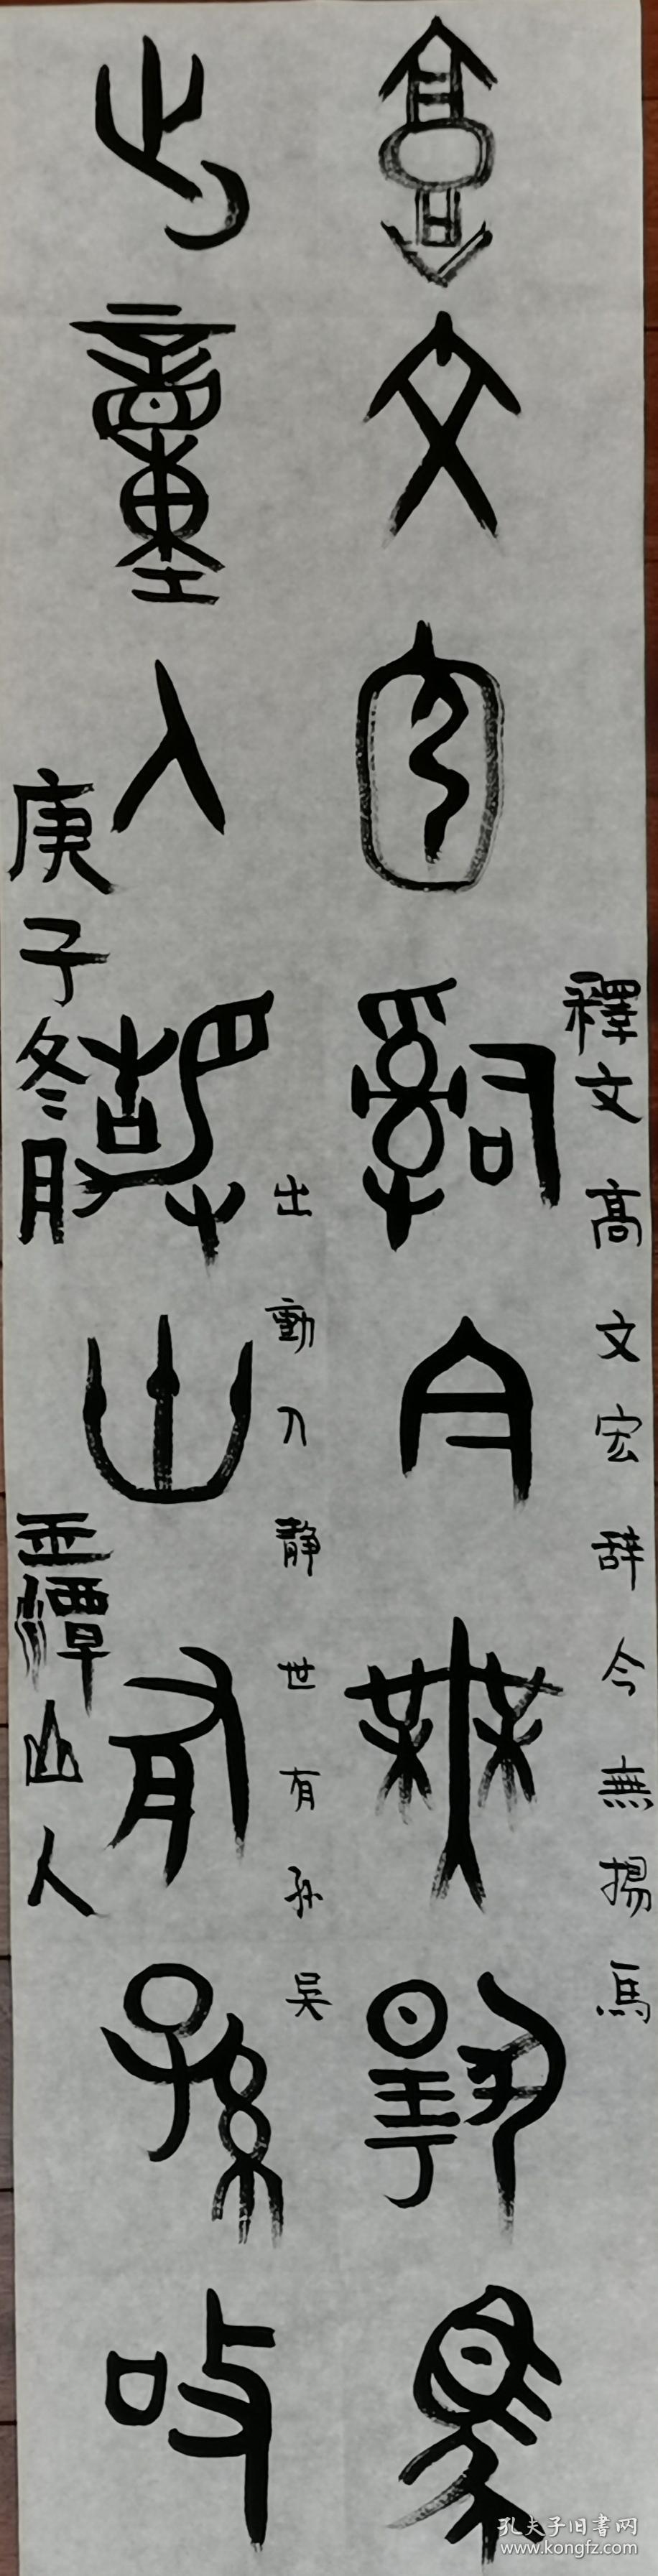 釋文 高文宏辞今無揚馬
高文宏辞今無揚馬
出動入静世有孙吴
出動入静世有孫吴
庚子冬月 潭山人
孔夫子旧書网
www.kongfz.com